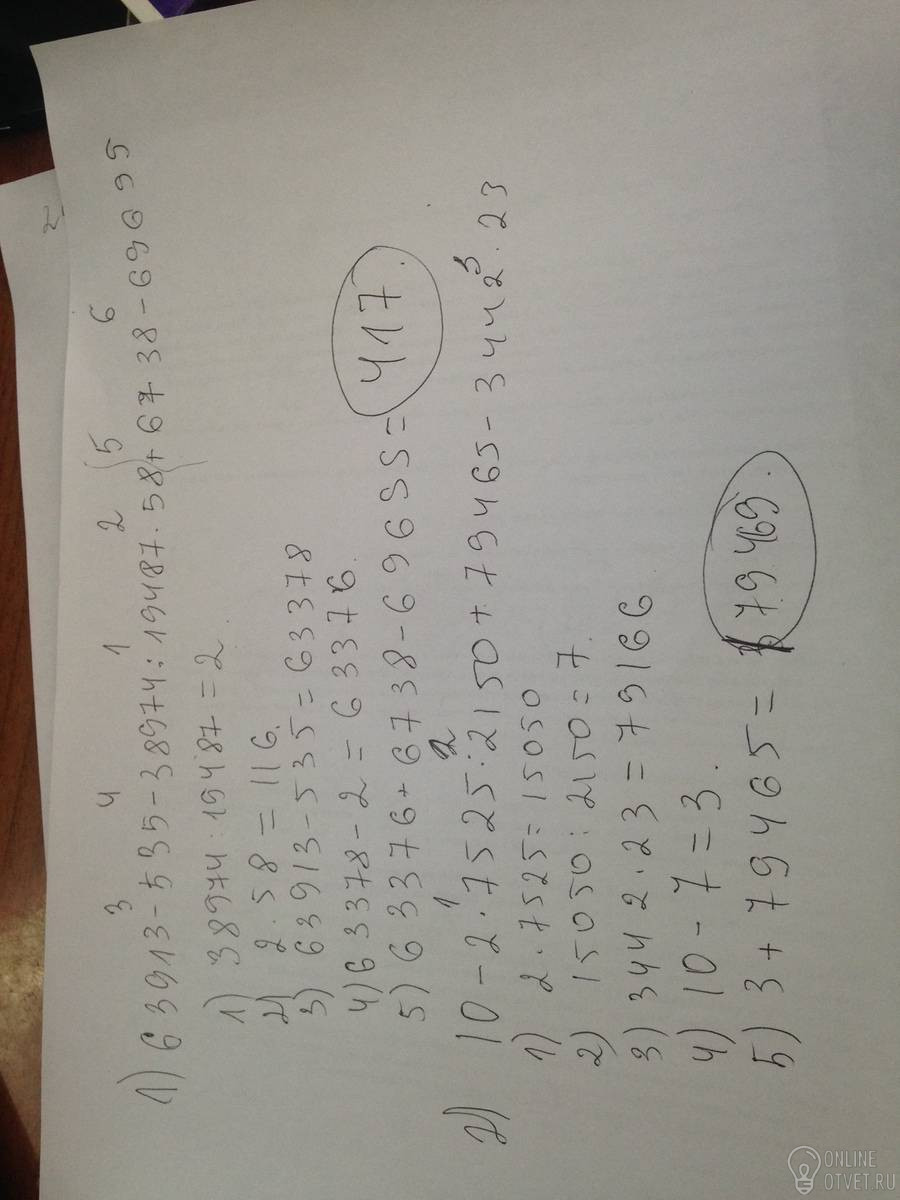 3 4 1 2 5 6
1) 63913-535-38974:19487·58+6738-69695
1) 38974:19487=2.
2) 2·58=116.
3) 63913-535=63378
4) 63378-2=63376.
5) 63376+6738-69655= 417.
1 2 3
2) 10-2·7525:2150+79465-3442·23
1) 2·7525=15050
2) 15050:2150=7.
3) 3442·23=79166
4) 10-7=3.
5) 3+79465= 79469.
ONLINE
OTVET.RU